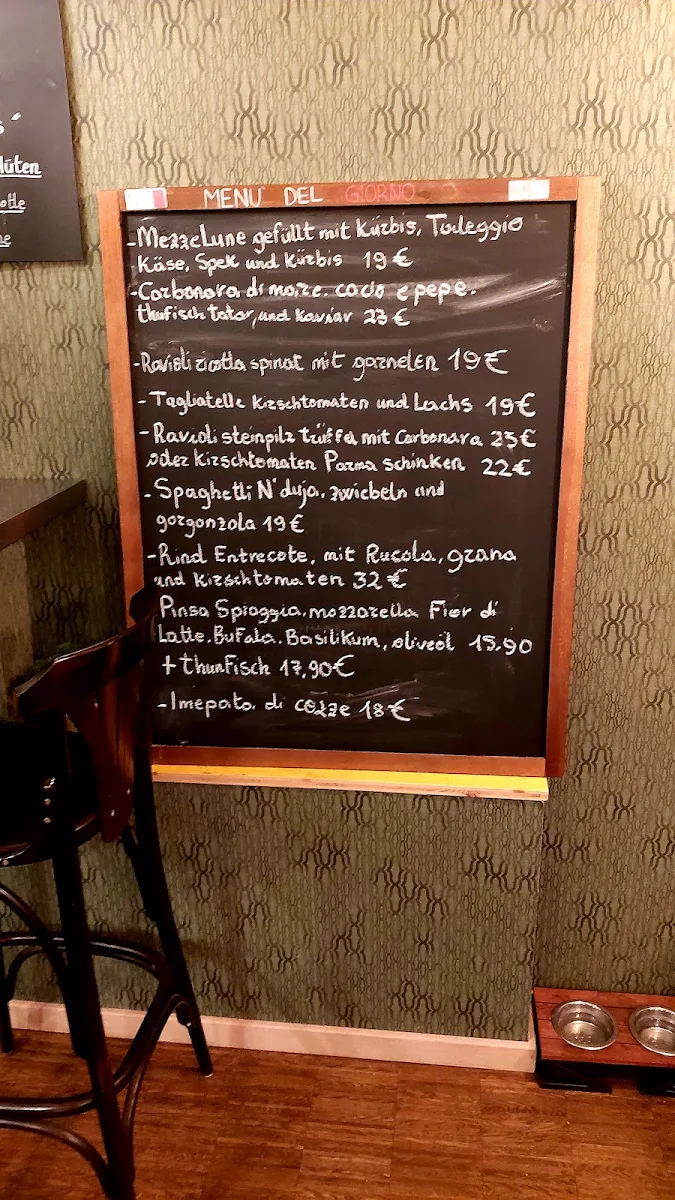 lüten
MENU DEL GIORNO
-MezzeLune gefüllt mit Kürbis, Taleggio
Käse, Spek und Kürbis 19 €
-Carbonara di mare. cacio e pepe.
thufisch tatar, und Kaviar 23 €
-Ravioli ricotta spinat mit garnelen 19 €
-Tagliatelle Kirschtomaten und Lachs 19 €
-Ravioli steinpilz trüffel mit Carbonara 23 €
oder Kirschtomaten Parma schinken 22 €
-Spaghetti N'duja. zwiebeln und
gorgonzola 19 €
-Rind Entrecote, mit Rucola, grana
und Kirschtomaten 32 €
Pinsa Spiaggia, mozzarella Fior di
Latte. Bufala. Basilikum, oliveöl 15,90
+ thunFisch 17,90€
-Imepata di cozze 18 €